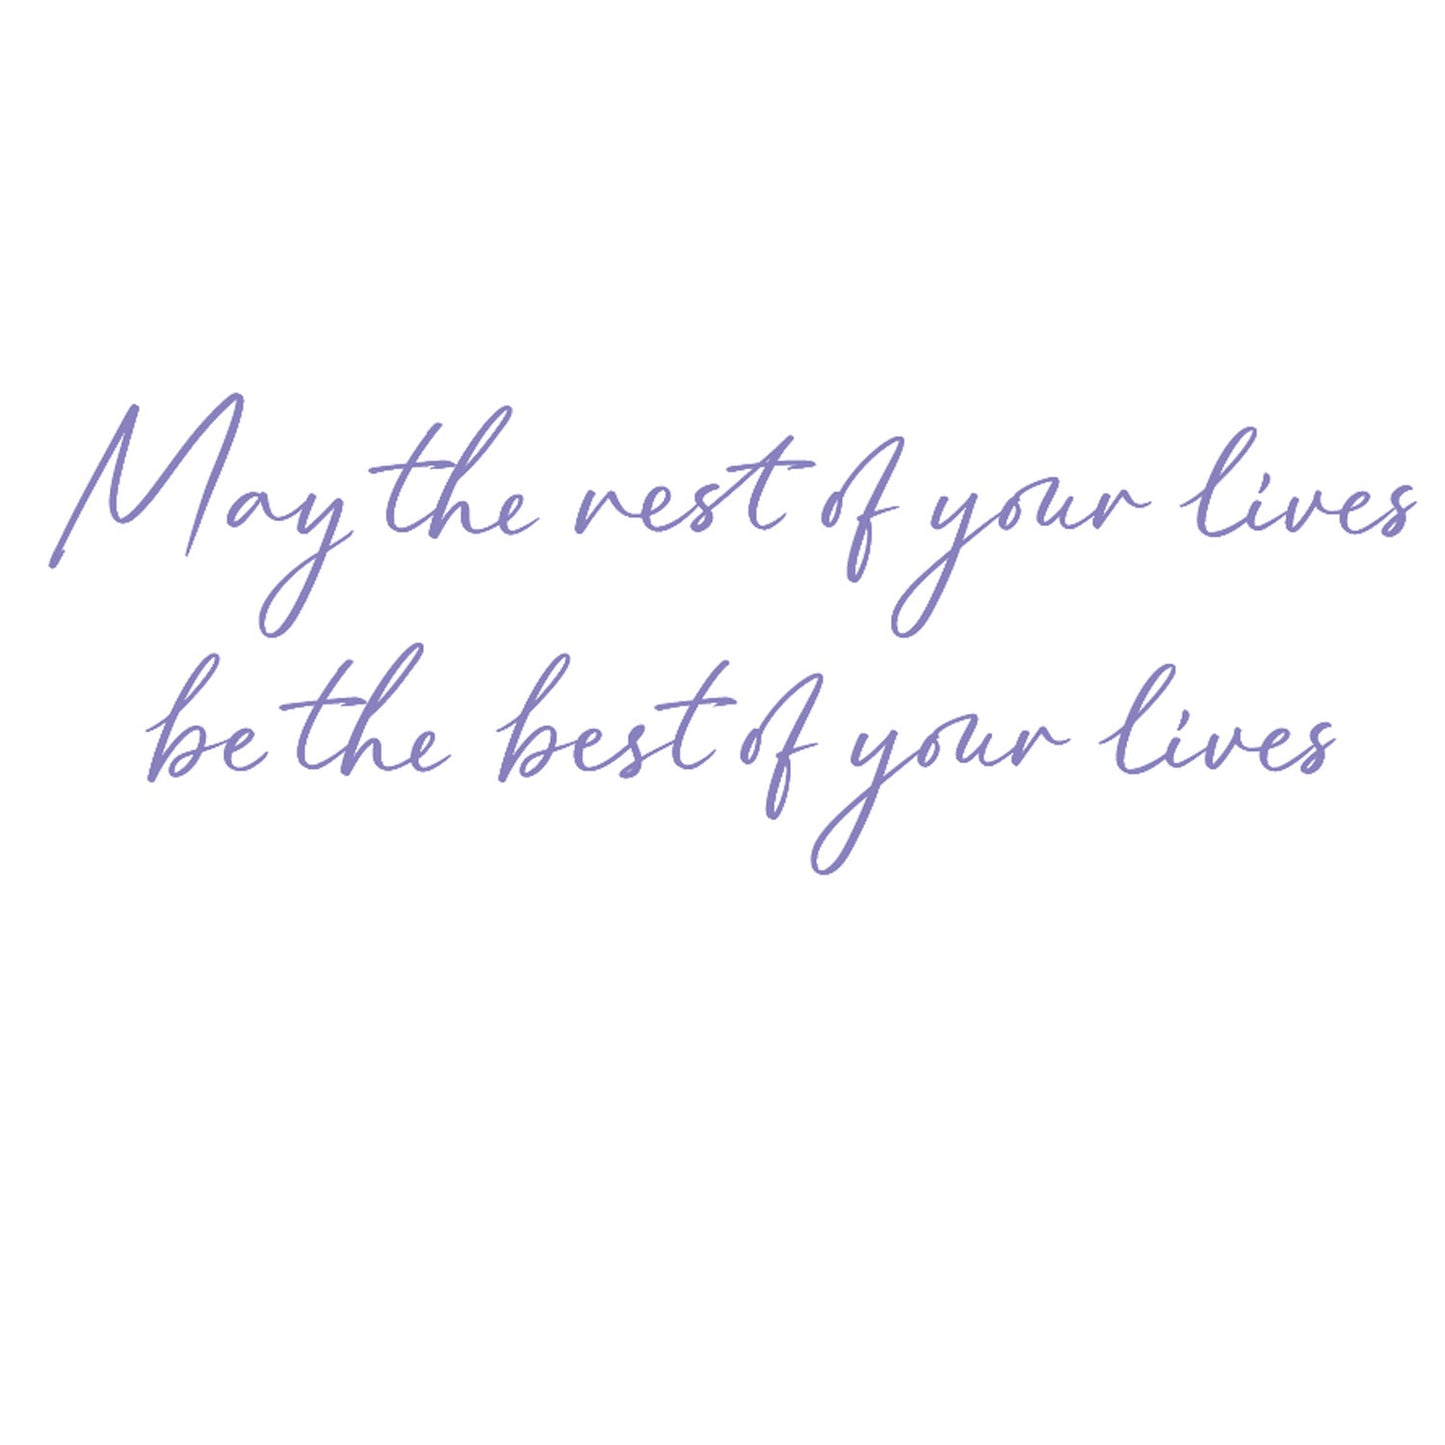 May the rest of your lives
be the best of your lives